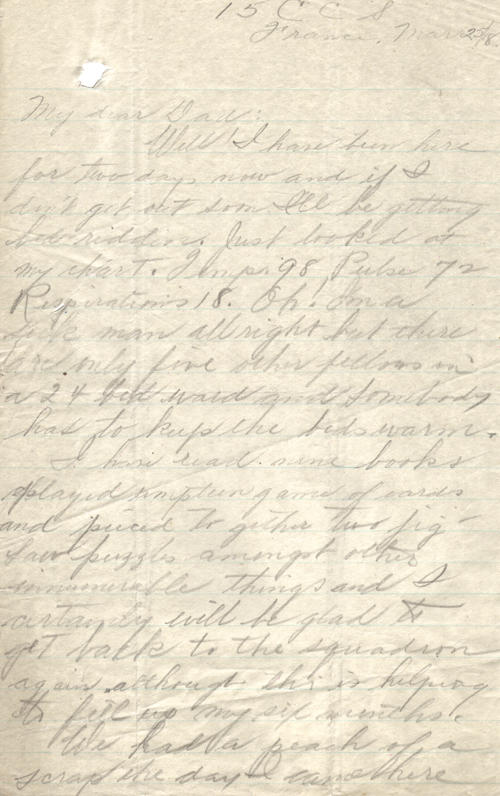 15 C C S
France, Mar 25/18
My dear Dad:
Well I have been here
for two days now and if I
don't get out soon I'll be getting
bed ridden. Just looked at
my chart. Temp: 98 Pulse 72
Respirations 18. Oh! I'm a
sick man allright but there
are only five other fellows in
a 24 bed ward and somebody
has to keep the beds warm.
I have read nine books
played umpteen game of cards
and pieced to gether two jig-
saw puzzles amongst other
innumerable things and I
certainly will be glad to
get back to the squadron
again although this is helping
to fill up my six months.
We had a peach of a
scrap the day I came here